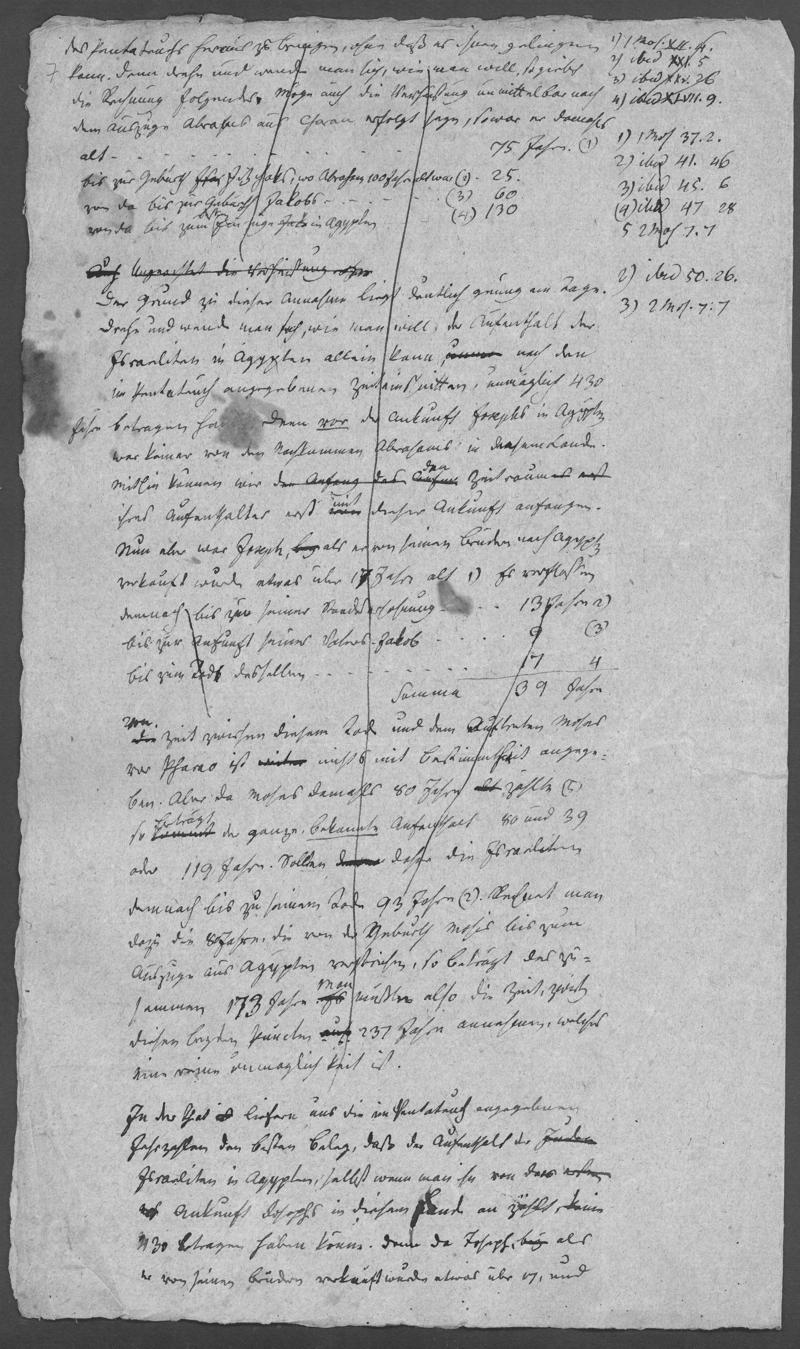 des Pentateuchs heraus zu bringen, ohne daß es ihnen gelingen
kann. Denn drehe und wende man sich, wie man will, so giebt
die Rechnung folgendes. Möge auch die Verheißung unmittelbar nach
dem Auszuge Abrahams aus Charan erfolgt seyn, so war er damals
alt - - - - - 75 Jahre. (1)
bis zur Geburt Itzchaks, wo Abraham 100 Jahr alt war (2) - 25.
von da bis zur Geburt Jakobs - - - (3) 60
von da bis zum in Ägypten (4) 130
1) 1 Mos. XII. 4.
2) ibid XXI. 5
3) ibid XXV. 26
4) ibid XLVII. 9.
1) 1 Mos 37. 2.
2) ibid 41. 46
3) ibid 45. 6
(4) ibid 47 28
5 2 Mos 7. 7
2) ibid 50. 26.
3) 2 Mos. 7. 7
Auch ungeachtet die Verheißung
Der Grund zu dieser Annahme liegt deutlich genug am Tage.
Drehe und wende man sich, wie man will, der Aufenthalt der
Israeliten in Ägypten allein kann nach den
im Pentateuch angegebenen Zeitabschnitten, unmöglich 430
Jahre betragen Denn vor der Ankunft Josephs in Ägypten
war keiner von den Nachkommen Abrahams in diesem Lande.
Mithin können wir den Anfang des Zeitraumes erst
ihres Aufenthaltes erst mit dieser Ankunft anfangen.
Nun aber war Joseph, als er von seinen Brüdern nach Ägypten
verkauft wurde etwas über 17 Jahr alt 1) Es verflossen
demnach bis zu seiner Standeserhöhung - - - 13 Jahre 2)
bis zur Ankunft seines Vaters Jakob - - - - 9 (3)
bis zum Tode desselben - - - - - 17 4
Summa 39 Jahre
von die Zeit zwischen diesem Tode und dem Auftreten Moses
vor Pharao ist weiter nichts mit Bestimmtheit angege-
ben. Aber da Moses damahls 80 Jahre alt zählte (5)
so beträgt kommt der ganze bekannte Aufenthalt 80 und 39
oder 119 Jahre. Sollten daher die Israeliten
demnach bis zu seinem Tode 93 Jahre (2). Rechnet man
dazu die 80 Jahre, die von der Geburt Mosis bis zum
Auszuge aus Ägypten verstrichen, so beträgt das zu-
sammen 173 Jahre man müßte also die Zeit, zwischen
diesen beyden Puncten auf 237 Jahre annehmen, welches
eine reine Unmöglichkeit ist.
In der That liefern uns die im Pentateuch angegebenen
Jahrzahlen den besten Beleg, daß der Aufenthalt der Juden
Israeliten in Ägypten, selbst wenn man ihn von der ersten
Ankunft Josephs in diesem Lande an zählt, keine
430 betragen haben könne. Denn da Joseph, als
er von seinen Brüdern verkauft wurde etwas über 17, und